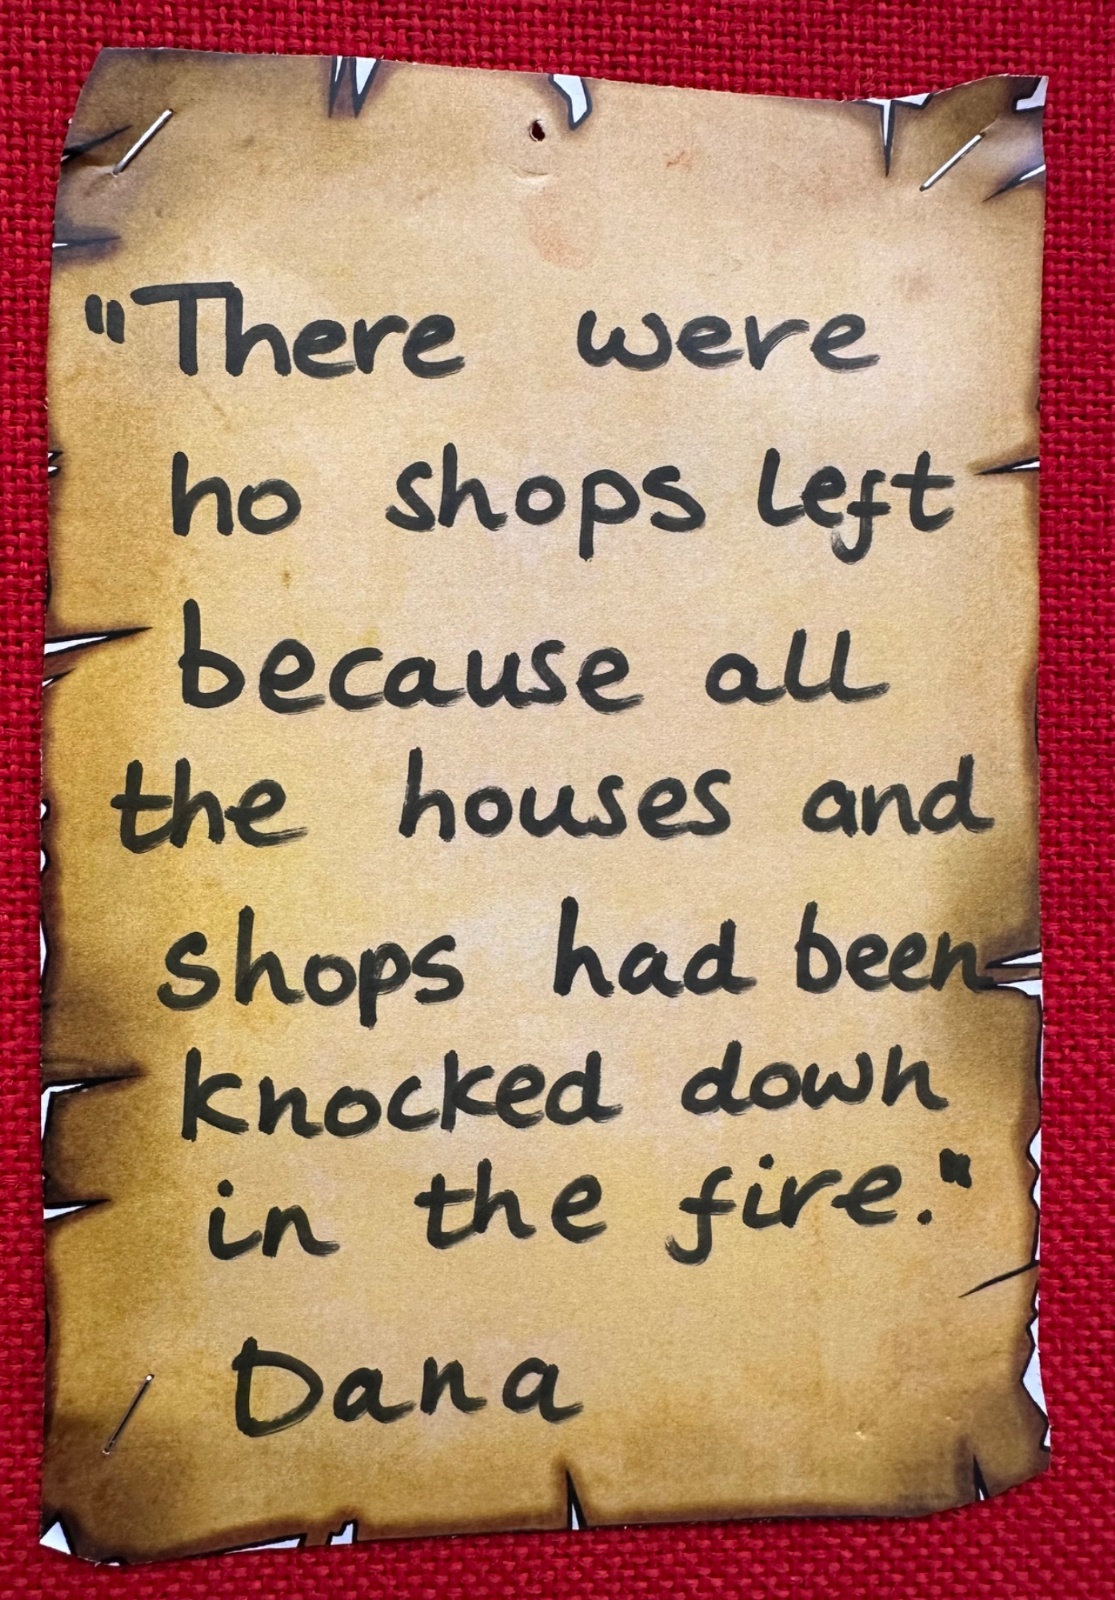 "There were
no shops left
because all
the houses and
shops had been
knocked down
in the fire."
Dana